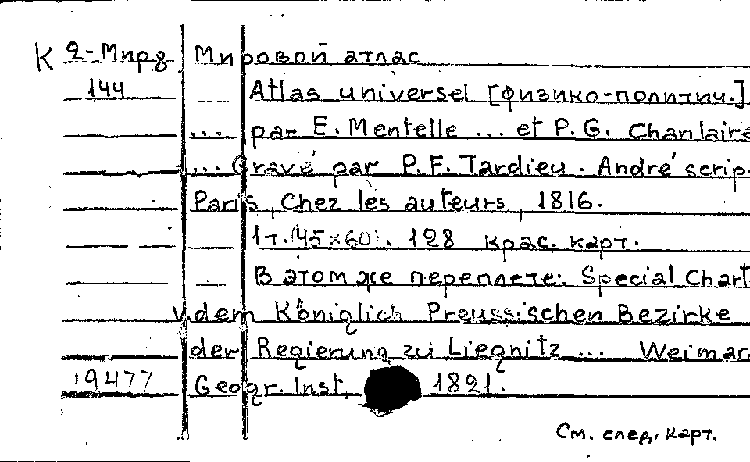 К 2-Мир8 Мировой атлас
144 Atlas universel [физико-политич.]
... par E. Mentelle ... et P. G. Chanlaire
... Gravé par P. F. Tardieu. André scrip.
Paris, Chez les auteurs, 1816.
1 т. (45×60). 128 крас. карт.
В этом же переплете: Special Chart
v. dem Königlich Preussischen Bezirke
der Regierung zu Liegnitz ... Weimar
19477 Geogr. Inst. 1821.
См. след. карт.